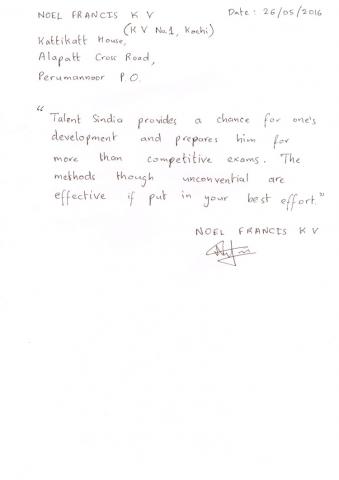 NOEL FRANCIS K V Date : 26/05/2016
(K V No.1, Kochi)
Kattikatt House,
Alapatt Cross Road,
Perumannoor P.O.
"Talent Sindia provides a chance for one's
development and prepares him for
more than competitive exams. The
methods though unconvential are
effective if put in your best effort."
NOEL FRANCIS K V